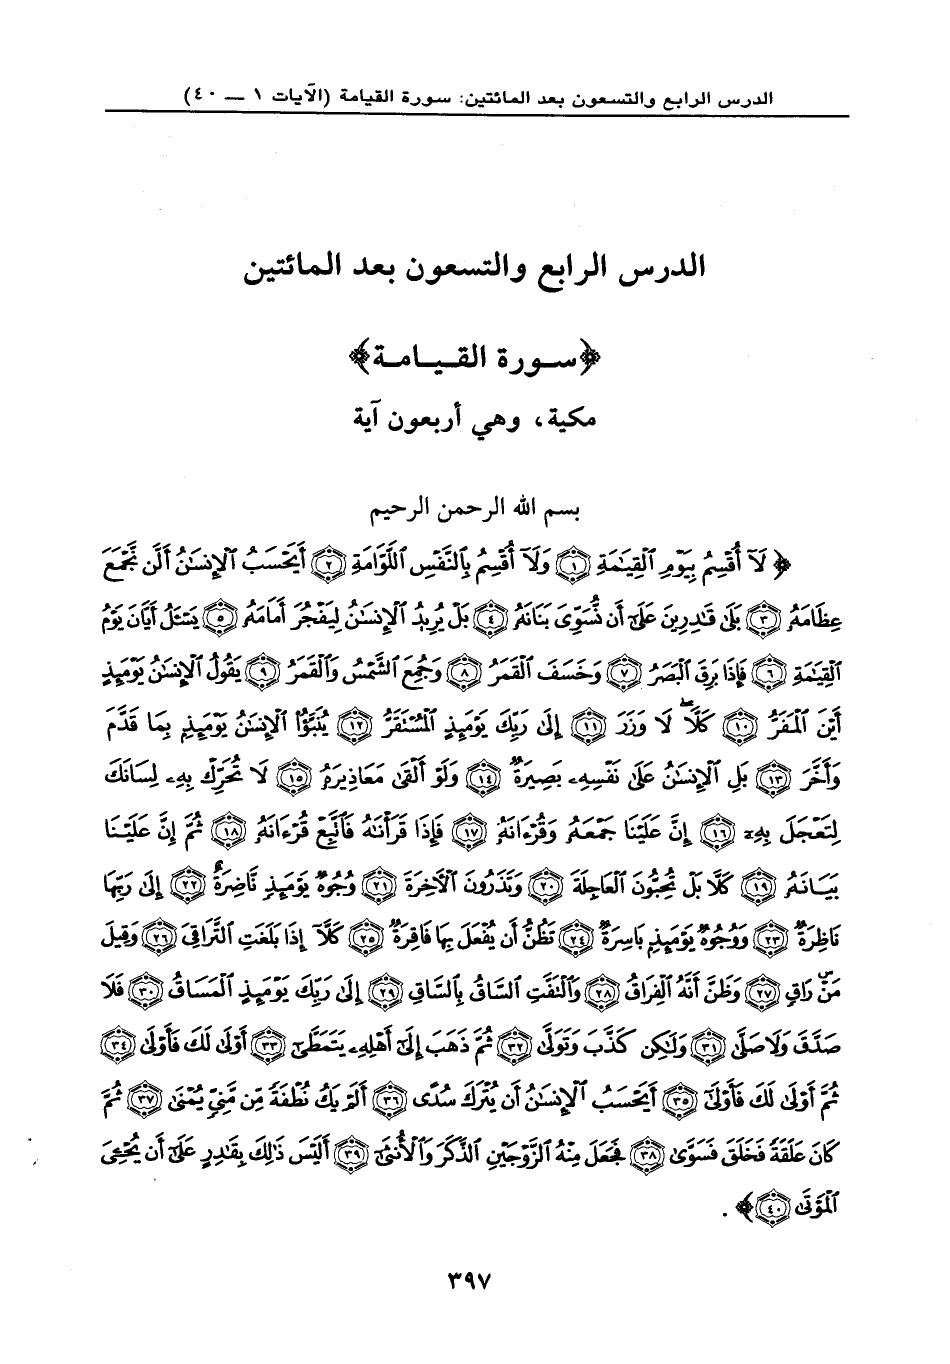 الدرس الرابع والتسعون بعد المائتين: سورة القيامة (الآيات ١ — ٤٠)
الدرس الرابع والتسعون بعد المائتين
﴿سورة القيامة﴾
مكية، وهي أربعون آية
بسم الله الرحمن الرحيم
﴿ لَآ أُقْسِمُ بِيَوْمِ ٱلْقِيَٰمَةِ ١ وَلَآ أُقْسِمُ بِٱلنَّفْسِ ٱللَّوَّامَةِ ٢ أَيَحْسَبُ ٱلْإِنسَٰنُ أَلَّن نَّجْمَعَ
عِظَامَهُۥ ٣ بَلَىٰ قَٰدِرِينَ عَلَىٰٓ أَن نُّسَوِّىَ بَنَانَهُۥ ٤ بَلْ يُرِيدُ ٱلْإِنسَٰنُ لِيَفْجُرَ أَمَامَهُۥ ٥ يَسْـَٔلُ أَيَّانَ يَوْمُ
ٱلْقِيَٰمَةِ ٦ فَإِذَا بَرِقَ ٱلْبَصَرُ ٧ وَخَسَفَ ٱلْقَمَرُ ٨ وَجُمِعَ ٱلشَّمْسُ وَٱلْقَمَرُ ٩ يَقُولُ ٱلْإِنسَٰنُ يَوْمَئِذٍ
أَيْنَ ٱلْمَفَرُّ ١٠ كَلَّا لَا وَزَرَ ١١ إِلَىٰ رَبِّكَ يَوْمَئِذٍ ٱلْمُسْتَقَرُّ ١٢ يُنَبَّؤُا۟ ٱلْإِنسَٰنُ يَوْمَئِذٍۭ بِمَا قَدَّمَ
وَأَخَّرَ ١٣ بَلِ ٱلْإِنسَٰنُ عَلَىٰ نَفْسِهِۦ بَصِيرَةٌ ١٤ وَلَوْ أَلْقَىٰ مَعَاذِيرَهُۥ ١٥ لَا تُحَرِّكْ بِهِۦ لِسَانَكَ
لِتَعْجَلَ بِهِۦٓ ١٦ إِنَّ عَلَيْنَا جَمْعَهُۥ وَقُرْءَانَهُۥ ١٧ فَإِذَا قَرَأْنَٰهُ فَٱتَّبِعْ قُرْءَانَهُۥ ١٨ ثُمَّ إِنَّ عَلَيْنَا
بَيَانَهُۥ ١٩ كَلَّا بَلْ تُحِبُّونَ ٱلْعَاجِلَةَ ٢٠ وَتَذَرُونَ ٱلْءَاخِرَةَ ٢١ وُجُوهٌ يَوْمَئِذٍ نَّاضِرَةٌ ٢٢ إِلَىٰ رَبِّهَا
نَاظِرَةٌ ٢٣ وَوُجُوهٌ يَوْمَئِذٍۭ بَاسِرَةٌ ٢٤ تَظُنُّ أَن يُفْعَلَ بِهَا فَاقِرَةٌ ٢٥ كَلَّآ إِذَا بَلَغَتِ ٱلتَّرَاقِىَ ٢٦ وَقِيلَ
مَنْ رَاقٍ ٢٧ وَظَنَّ أَنَّهُ ٱلْفِرَاقُ ٢٨ وَٱلْتَفَّتِ ٱلسَّاقُ بِٱلسَّاقِ ٢٩ إِلَىٰ رَبِّكَ يَوْمَئِذٍ ٱلْمَسَاقُ ٣٠ فَلَا
صَدَّقَ وَلَا صَلَّىٰ ٣١ وَلَٰكِن كَذَّبَ وَتَوَلَّىٰ ٣٢ ثُمَّ ذَهَبَ إِلَىٰٓ أَهْلِهِۦ يَتَمَطَّىٰٓ ٣٣ أَوْلَىٰ لَكَ فَأَوْلَىٰ ٣٤
ثُمَّ أَوْلَىٰ لَكَ فَأَوْلَىٰٓ ٣٥ أَيَحْسَبُ ٱلْإِنسَٰنُ أَن يُتْرَكَ سُدًى ٣٦ أَلَمْ يَكُ نُطْفَةً مِّن مَّنِىٍّ يُمْنَىٰ ٣٧ ثُمَّ
كَانَ عَلَقَةً فَخَلَقَ فَسَوَّىٰ ٣٨ فَجَعَلَ مِنْهُ ٱلزَّوْجَيْنِ ٱلذَّكَرَ وَٱلْأُنثَىٰٓ ٣٩ أَلَيْسَ ذَٰلِكَ بِقَٰدِرٍ عَلَىٰٓ أَن يُحْـِۧىَ
ٱلْمَوْتَىٰ ٤٠﴾.
٣٩٧